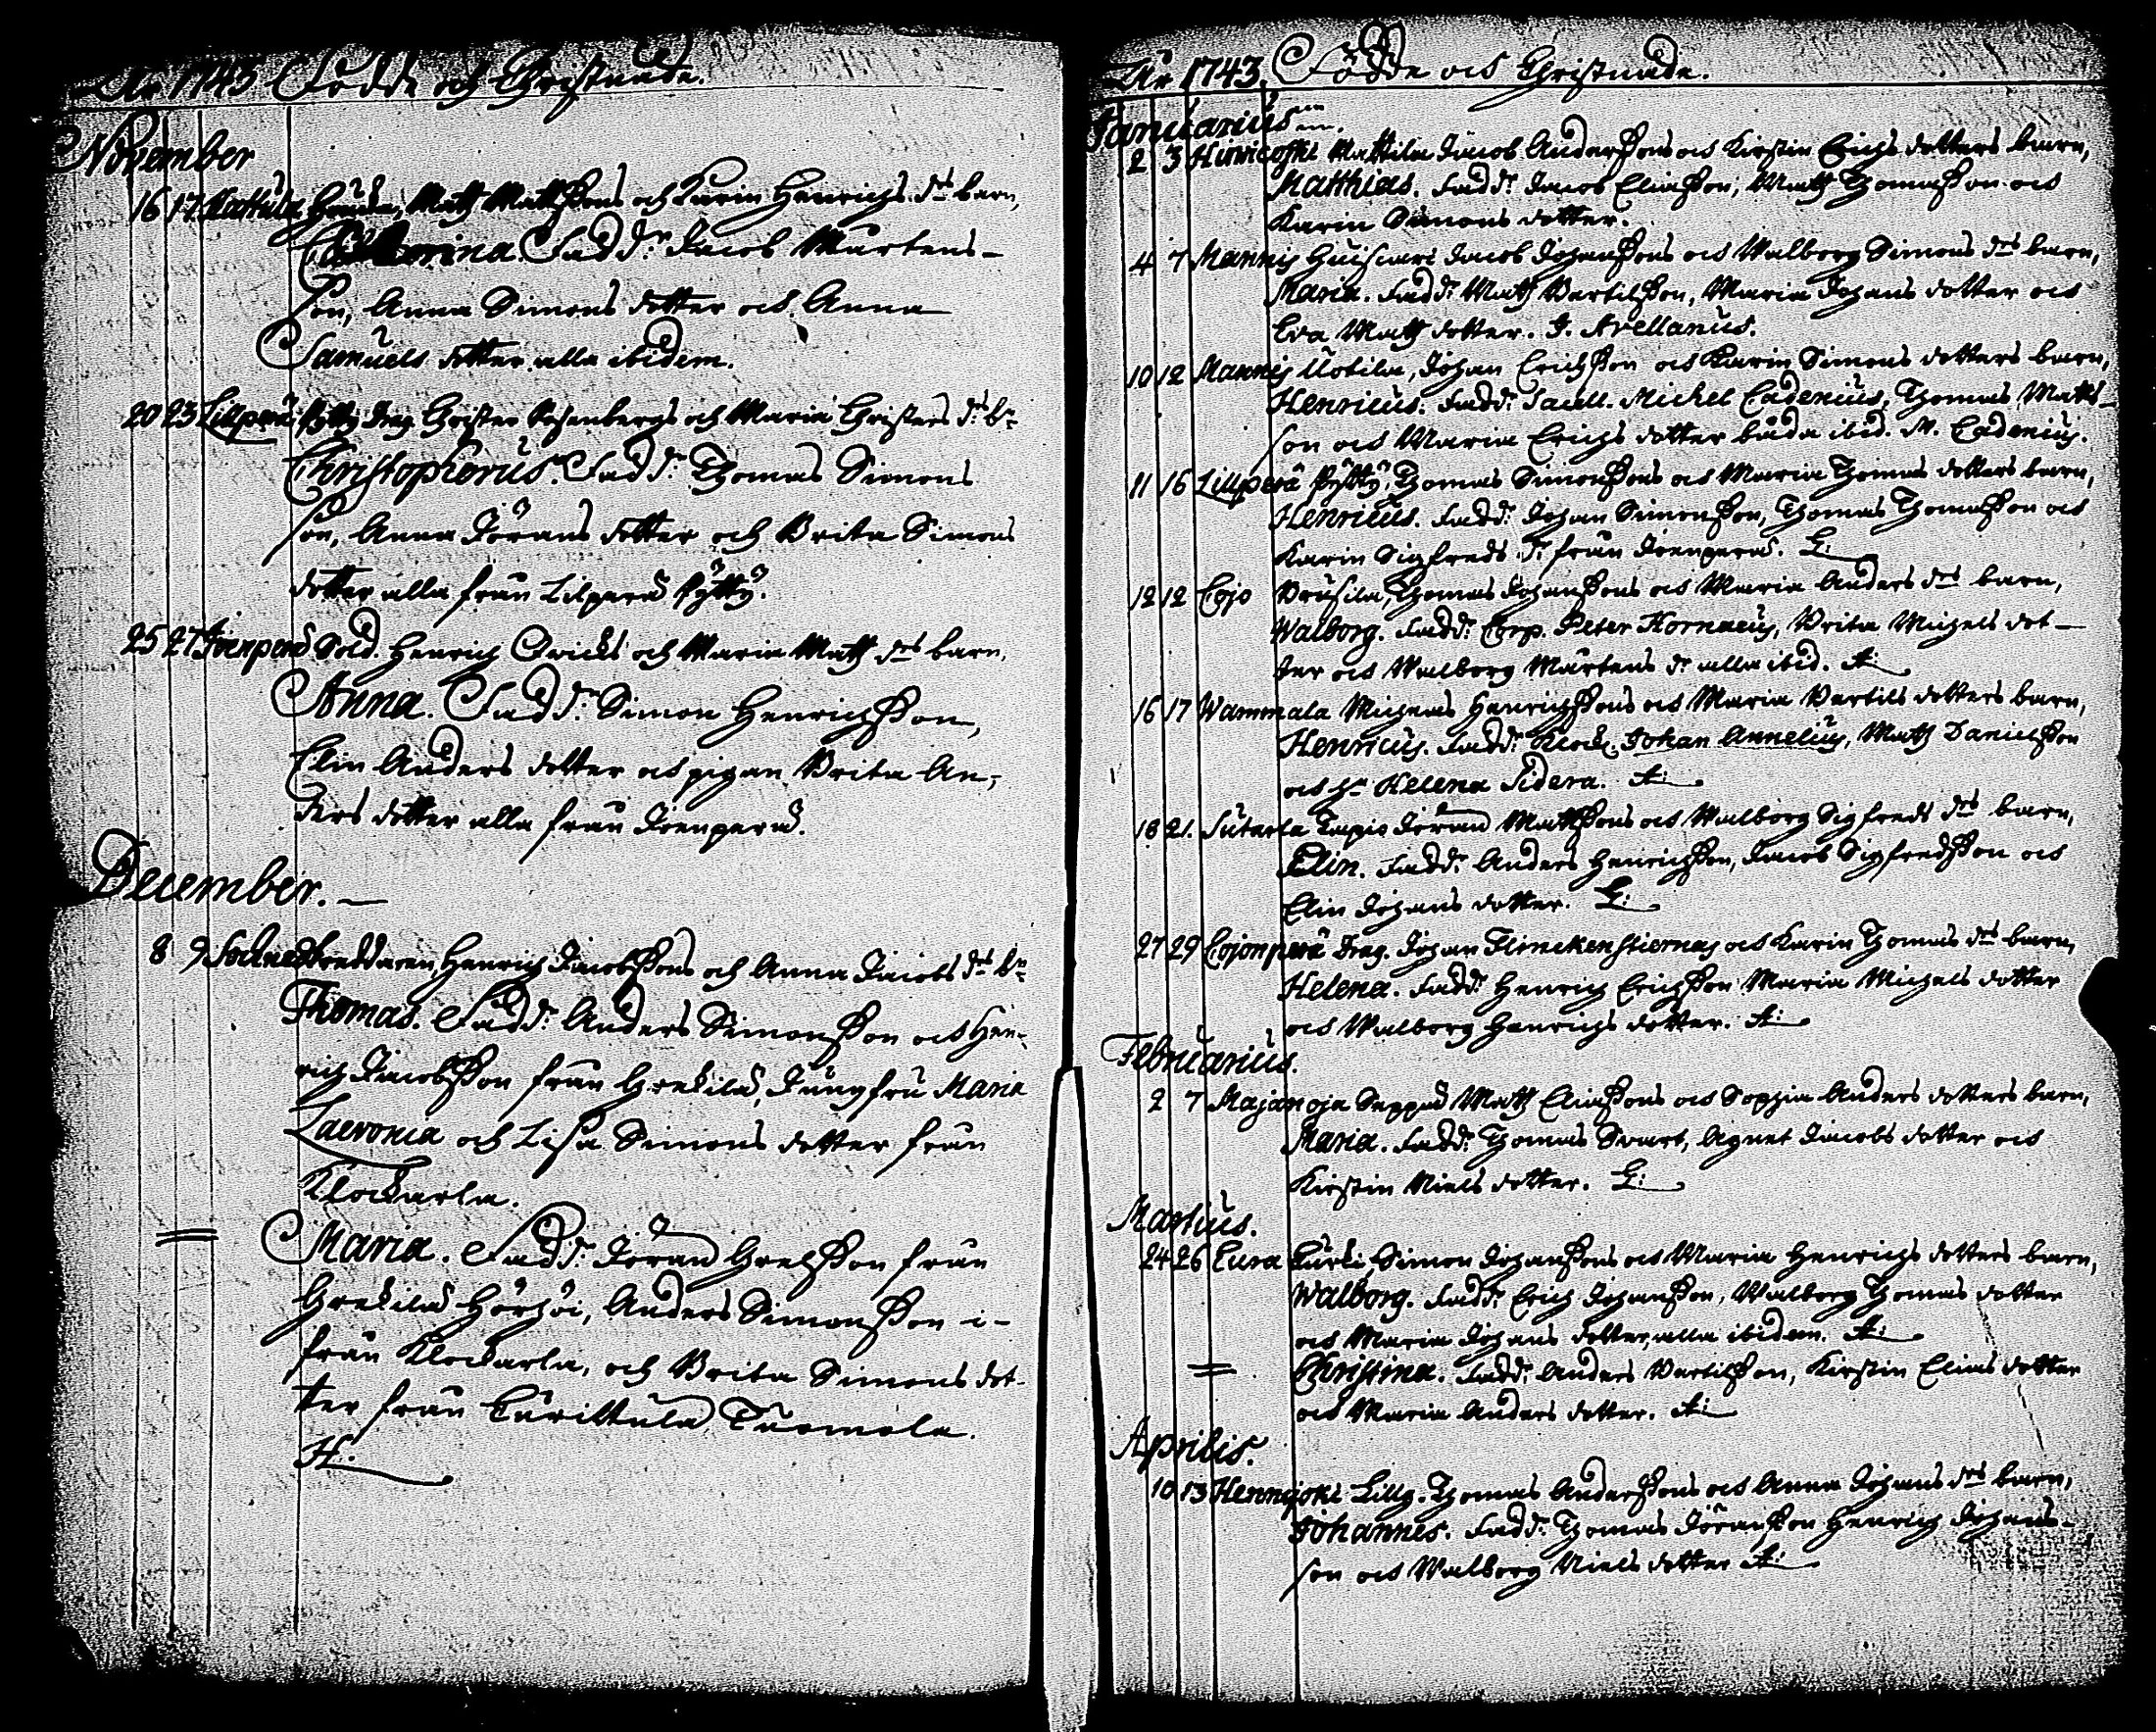 År 1743 Födde och Christnade.
November
16 17 Kattula Heikila, Matts Mattssons och Karin Henrichs drs barn,
Catharina. Fadd: Jacob Mårtens-
son, Anna Simons dotter och Anna
Samuels dotter alla ibidem.
20 23 Lillperä Pytty Drag. Christer Rosenbergs och Maria Christers drs br
Christophorus. Fadd: Thomas Simons
son, Anna Jörans dotter och Brita Simons
dotter alla från Lilperä Pytty.
25 27 Joenperä Sold. Henrich Qvicks och Maria Matts drs barn,
Anna. Fadd: Simon Henrichsson,
Elin Anders dotter och pigan Brita An-
ders dotter alla från Joenperä.
December.
8 9 Henrich Jacobssons och Anna Jacobs drs br
Thomas. Fadd: Anders Simonsson och Hen-
rich Jacobsson från Grekilä, Jungfru Maria
Laevonia och Lisa Simons dotter från
Klockarla.
= Maria. Fadd: Jöran Grelsson från
Grekilä Hörhöi, Anders Simonsson i-
från Klockarla, och Brita Simons dot-
ter från Kurittula Tuomola.
H:
År 1743. Födde och Christnade.
Januarius.
2 3 Hinnicoski Mattila Jacob Anderssons och Kirstin Erichs dotters barn,
Matthias. Fadd: Jacob Eliasson, Matts Thomasson och
Karin Simons dotter.
4 7 Mannis Huiscari Jacob Johanssons och Walborg Simons drs barn,
Maria. Fadd: Matts Bertilsson, Maria Johans dotter och
Eva Matts dotter. J. Avellanus.
10 12 Mannis Uotila, Johan Erichsson och Karin Simons dotters barn,
Henricus. Fadd: Sacell. Michel Cadenius, Thomas Matts-
son och Maria Erichs dotter båda ibid. M. Cadenius.
11 16 Lillperä Pyttÿ, Thomas Simonssons och Maria Thomas dotters barn,
Henricus. Fadd: Johan Simonsson, Thomas Thomasson och
Karin Sigfreds dr från Joenperä. E:
12 12 Cojo Prusila, Thomas Johanssons och Maria Anders drs barn,
Walborg. Fadd: Corp. Peter Kornaeus, Brita Michels dot-
ter och Walborg Mårtens dr alla ibid. A:
16 17 Wammala Michens Henrichssons och Maria Bertils dotters barn,
Henricus. Fadd: Klock. Johan Annelius, Matts Danielsson
och hr Helena Sidera. A:
18 21. Sutarla Tapio Jöran Mattssons och Walborg Sigfreds drs barn,
Elin. Fadd: Anders Henrichsson, Jacob Sigfredsson och
Elin Johans dotter. E:
27 29 Cojonperä Drag. Johan Flinckenstiernas och Karin Thomas drs barn,
Helena. Fadd: Henrich Erichsson Maria Michels dotter
och Walborg Henrichs dotter. A:
Februarius.
2 7 Majanoja Seppä Matts Eliassons och Sophia Anders dotters barn,
Maria. Fadd: Thomas Svart, Agnet Jacobs dotter och
Kirstin Niels dotter. E:
Martius.
24 26 Eura Kurki, Simon Johanssons och Maria Henrichs dotters barn,
Walborg. Fadd: Erich Johansson, Walborg Thomas dotter
och Maria Johans dotter, alla ibidem. A:
= Christina. Fadd: Anders Bertilsson, Kirstin Elias dotter
och Maria Anders dotter. A:
Aprilis.
10 13 Hennijoki Lilly. Thomas Anderssons och Anna Johans drs barn,
Johannes. Fadd: Thomas Jöransson Henrich Johans-
son och Walborg Niels dotter A: